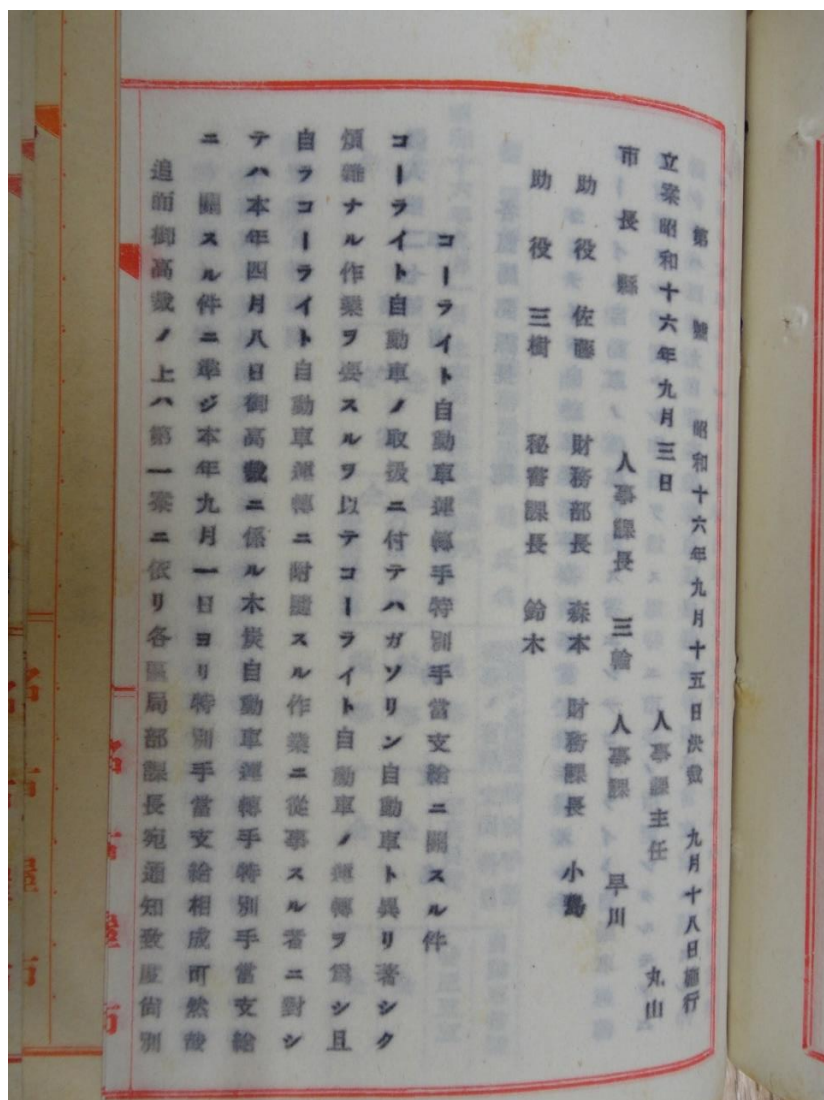 第　　　號　　昭和十六年九月十五日決裁　　九月十八日施行
立案昭和十六年九月三日　　人事課主任　丸山
市長縣　　人事課長　三輪　人事課　早川
助役　佐藤　財務部長　森本　財務課長　小鷲
助役　三樹　秘書課長　鈴木
コーライト自動車運轉手特別手當支給ニ關スル件
コーライト自動車ノ取扱ニ付テハガソリン自動車ト異リ著シク
煩雜ナル作業ヲ要スルヲ以テコーライト自動車ノ運轉ヲ爲シ且
自ラコーライト自動車運轉ニ附隨スル作業ニ從事スル者ニ對シ
テハ本年四月八日御高裁ニ係ル木炭自動車運轉手特別手當支給
ニ關スル件ニ準ジ本年九月一日ヨリ特別手當支給相成可然哉
追而御高裁ノ上ハ第一案ニ依リ各區局部課長宛通知致度尚別
名古屋市
名古屋市